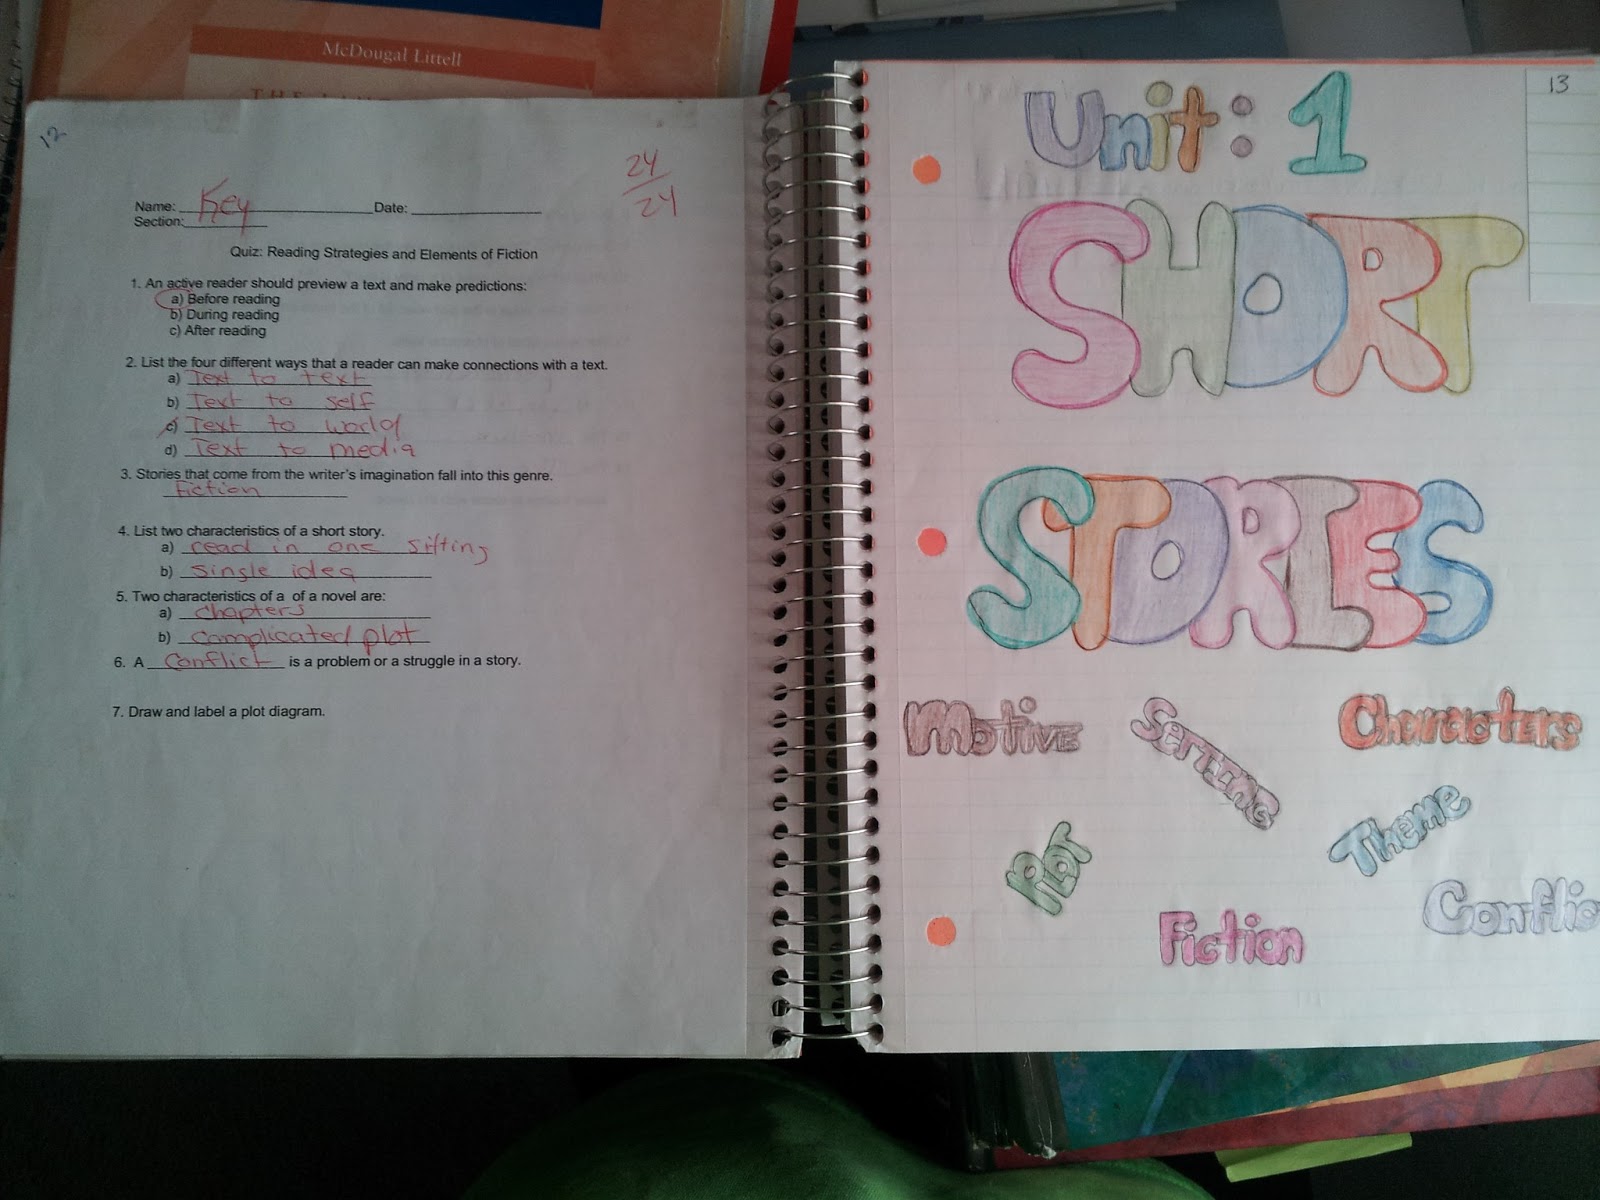 McDougal Littell
12
24
24
Name: Key Date:
Section:
Quiz: Reading Strategies and Elements of Fiction
1. An active reader should preview a text and make predictions:
a) Before reading
b) During reading
c) After reading
2. List the four different ways that a reader can make connections with a text.
a) Text to text
b) Text to self
c) Text to world
d) Text to media
3. Stories that come from the writer's imagination fall into this genre.
fiction
4. List two characteristics of a short story.
a) read in one sitting
b) single idea
5. Two characteristics of a of a novel are:
a) chapters
b) complicated plot
6. A conflict is a problem or a struggle in a story.
7. Draw and label a plot diagram.
13
Unit: 1
SHORT
STORIES
Motive
Setting
Characters
Plot
Theme
Fiction
Conflic